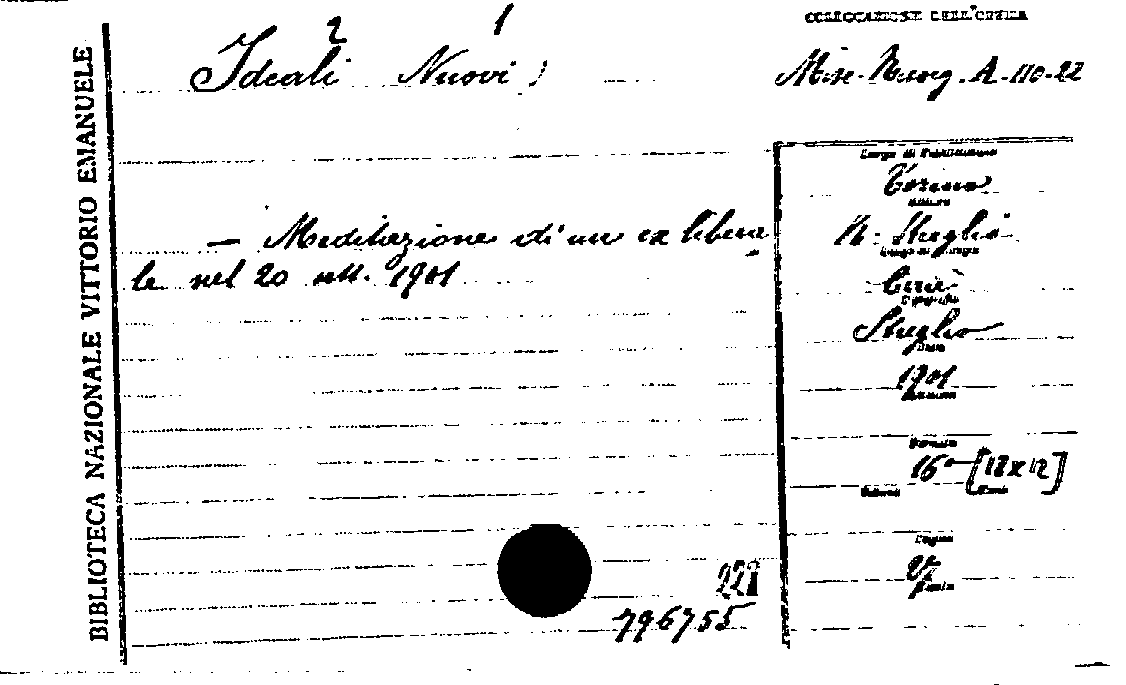 BIBLIOTECA NAZIONALE VITTORIO EMANUELE
2 1
Ideali Nuovi
COLLOCAZIONE DELL'OPERA
Misc. Risorg. A. 110-22
— Meditazione di un ex libera
le nel 20 sett. 1901
Luogo di Pubblicazione
Torino
Editore
R. Streglio
Luogo di Stampa
Ciriè
Tipografia
Streglio
Data
1901
Formato
16° [18 x 12]
Volumi
Pagine
27
221
796755